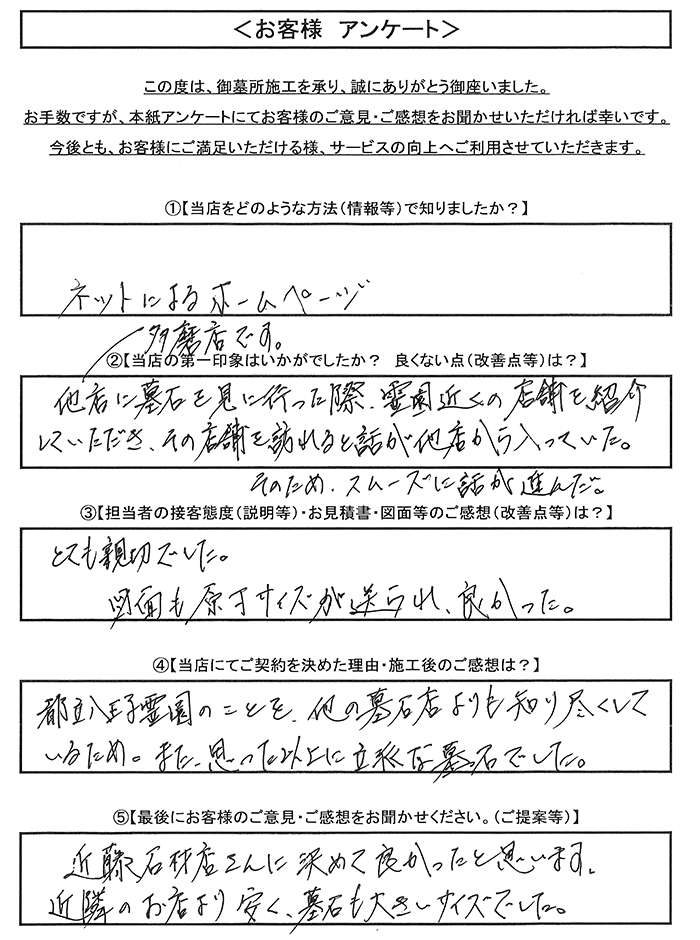 ＜お客様　アンケート＞
この度は、御墓所施工を承り、誠にありがとう御座いました。
お手数ですが、本紙アンケートにてお客様のご意見・ご感想をお聞かせいただければ幸いです。
今後とも、お客様にご満足いただける様、サービスの向上へご利用させていただきます。
①【当店をどのような方法（情報等）で知りましたか？】
ネットによるホームページ
多磨店です。
②【当店の第一印象はいかがでしたか？　良くない点（改善点等）は？】
他店に墓石を見に行った際、霊園近くの店舗を紹介
していただき、その店舗を訪れると話が他店から入っていた。
そのため、スムーズに話が進んだ。
③【担当者の接客態度（説明等）・お見積書・図面等のご感想（改善点等）は？】
とても親切でした。
図面も原寸サイズが送られ、良かった。
④【当店にてご契約を決めた理由・施工後のご感想は？】
都立八王子霊園のことを、他の墓石店よりも知り尽くして
いるため。また、思った以上に立派な墓石でした。
⑤【最後にお客様のご意見・ご感想をお聞かせください。（ご提案等）】
近藤石材店さんに決めて良かったと思います。
近隣のお店より安く、墓石も大きいサイズでした。